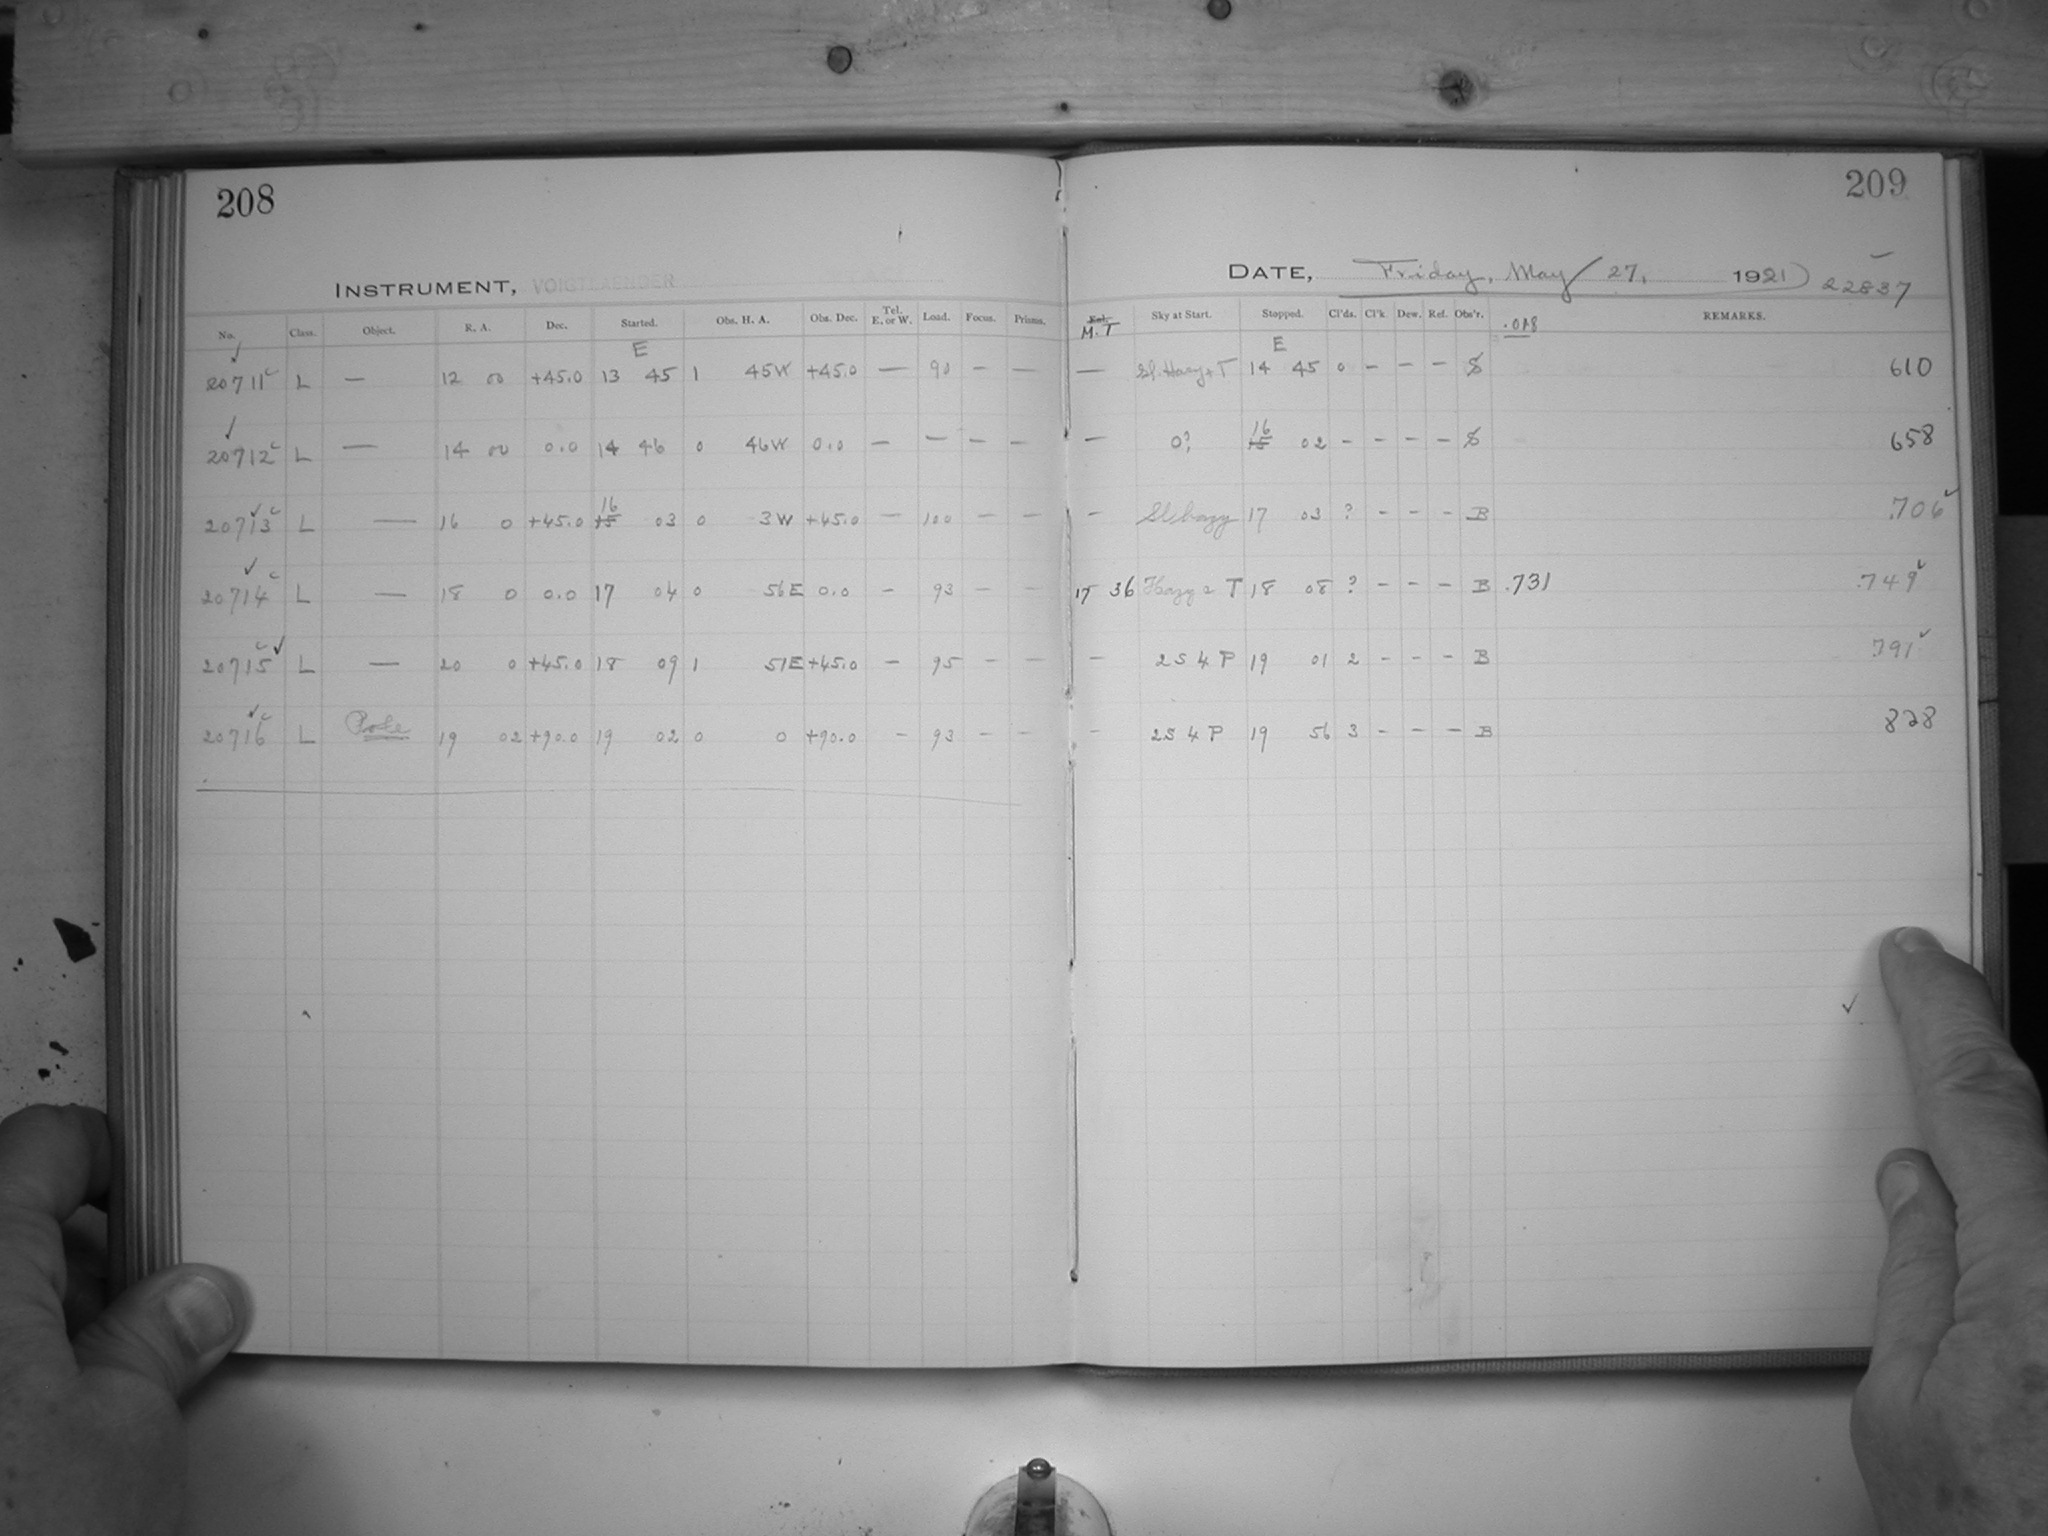 208
209
INSTRUMENT, VOIGTLAENDER
DATE, Friday, May 27, 1921) 22837
No. Class. Object. R. A. Dec. Started. Obs. H. A. Obs. Dec. Tel. E. or W. Load. Focus. Prisms. M. T Sky at Start. Stopped. Cl'ds. Cl'k. Dew. Ref. Obs'r. .018 REMARKS.
E E
20711 L — 12 00 +45.0 13 45 1 45W +45.0 — 90 — — — Sl. Hazy + T 14 45 0 - - - S 610
20712 L — 14 00 0.0 14 46 0 46W 0.0 — — — — — 0? 16 02 - - - - S 658
20713 L — 16 0 +45.0 16 03 0 3W +45.0 — 100 — — - Sl hazy 17 03 ? - - - B .706
20714 L — 18 0 0.0 17 04 0 56E 0.0 - 93 — — 17 36 Hazy & T 18 08 ? - - - B .731 .749
20715 L — 20 0 +45.0 18 09 1 51E +45.0 - 95 - — - 2S 4 P 19 01 2 - - - B 791
20716 L Pole 19 02 +90.0 19 02 0 0 +90.0 - 93 - — - 2S 4 P 19 56 3 - - - B 828